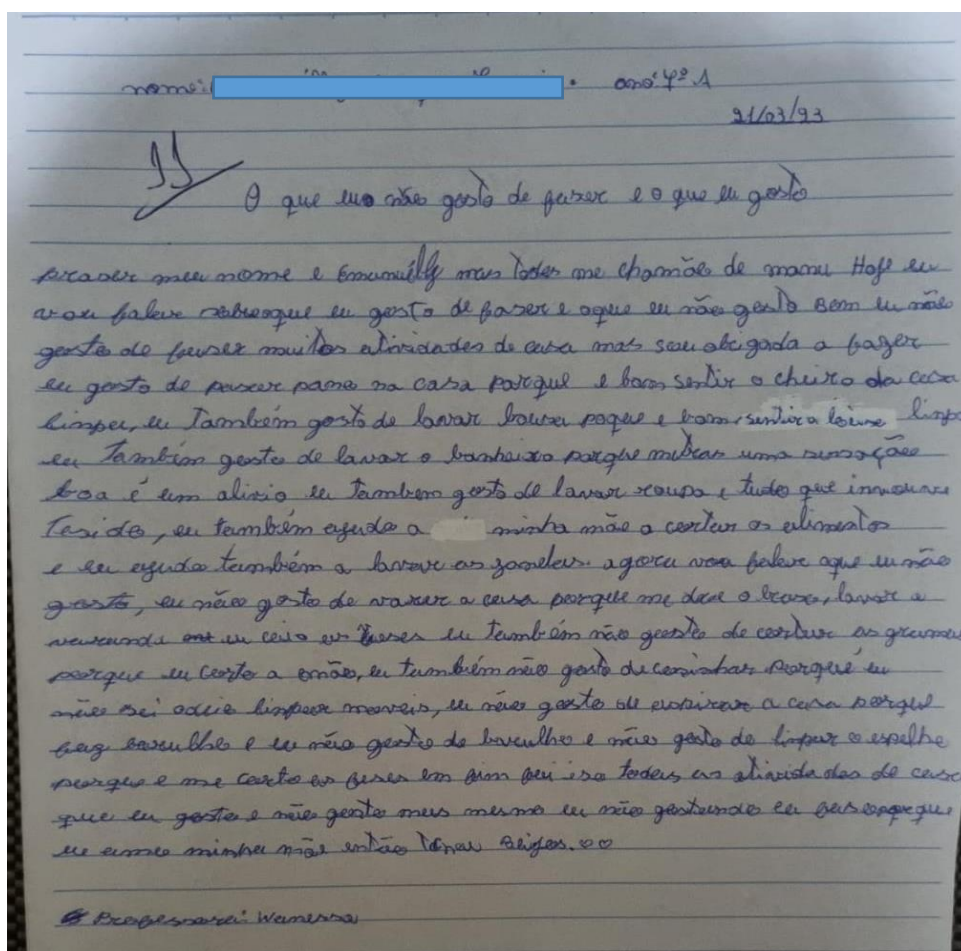 nome: ano: 4º A
21/03/23
O que euo não gosto de faser e o que eu gosto
praser meu nome e Emanuelly mas todos me chamão de manu Hoje eu
vou falar sobreoque eu gosto de faser e oque eu não gosto Bem eu não
gosto de faser muitas atividades de casa mas sou obrigada a fazer
eu gosto de passar pano na casa porque e bom sentir o cheiro da casa
limpa, eu Também gosto de lavar lousa poque e bom sentir a loisa limpa
eu Também gosto de lavar o banheiro porque uma sensação
boa é um alivio eu Tambem gosto de lavar roupa e tudo que
Tesido, eu também ajudo a minha mãe a cortar os alimentos
e eu ajudo também a lavar as janelas. agora vou falar oque eu não
gosto, eu não gosto de varer a casa porque me doe o braso, lavar a
varanda eu caio as veses eu também não gosto de cortar as gramas
porque eu corto a mão, eu também não gosto de cosinhar Porque eu
não sei odeio limpar moveis, eu não gosto de a casa porque
faz barulho e eu não gosto de barulho e não gosto de limpar o espelho
porque e me corto as veses em fim foi iso todas as atividades de casa
que eu gosto e não gosto mas mesmo eu não gostando eu faso porque
eu amo minha mãe então Tchau Beijos. ♡♡
Professora: Wanessa